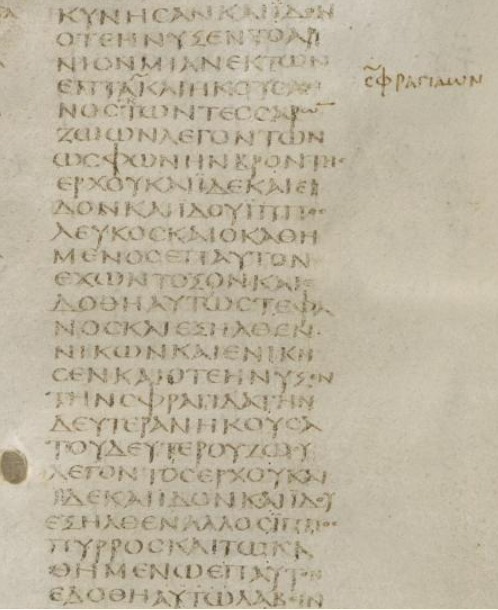 ΚΥΝΗCΑΝ ΚΑΙ ΪΔΟΝ
ΟΤΕ ΗΝΥΞΕΝ ΤΟ ΑΡ
ΝΙΟΝ ΜΙΑΝ ΕΚ ΤΩΝ
ΕΠΤΑ ΚΑΙ ΗΚΟΥCΑ
CΦΡΑΓΙΔΩΝ
ΝΟC ΤΩΝ ΤΕCCΑΡΩ
ΖΩΩΝ ΛΕΓΟΝΤΩΝ
ΩC ΦΩΝΗΝ ΒΡΟΝΤΗ
ΕΡΧΟΥ ΚΑΙ ΪΔΕ ΚΑΙ ΕΙ
ΔΟΝ ΚΑΙ ΪΔΟΥ ΪΠΠΟ
ΛΕΥΚΟC ΚΑΙ Ο ΚΑΘΗ
ΜΕΝΟC ΕΠ ΑΥΤΟΝ
ΕΧΩΝ ΤΟΞΟΝ ΚΑΙ
ΔΟΘΗ ΑΥΤΩ CΤΕΦΑ
ΝΟC ΚΑΙ ΕΞΗΛΘΕΝ
ΝΙΚΩΝ ΚΑΙ ΕΝΙΚΗ
CΕΝ ΚΑΙ ΟΤΕ ΗΝΥΞΕΝ
ΤΗΝ CΦΡΑΓΙΔΑ ΤΗΝ
ΔΕΥΤΕΡΑΝ ΗΚΟΥCΑ
ΤΟΥ ΔΕΥΤΕΡΟΥ ΖΩΟΥ
ΛΕΓΟΝΤΟC ΕΡΧΟΥ ΚΑΙ
ΪΔΕ ΚΑΙ ΙΔΟΝ ΚΑΙ ΪΔΟΥ
ΕΞΗΛΘΕΝ ΑΛΛΟC ΪΠΠΟ
ΠΥΡΡΟC ΚΑΙ ΤΩ ΚΑ
ΘΗΜΕΝΩ ΕΠ ΑΥΤΟ
ΕΔΟΘΗ ΑΥΤΩ ΛΑΒΙΝ